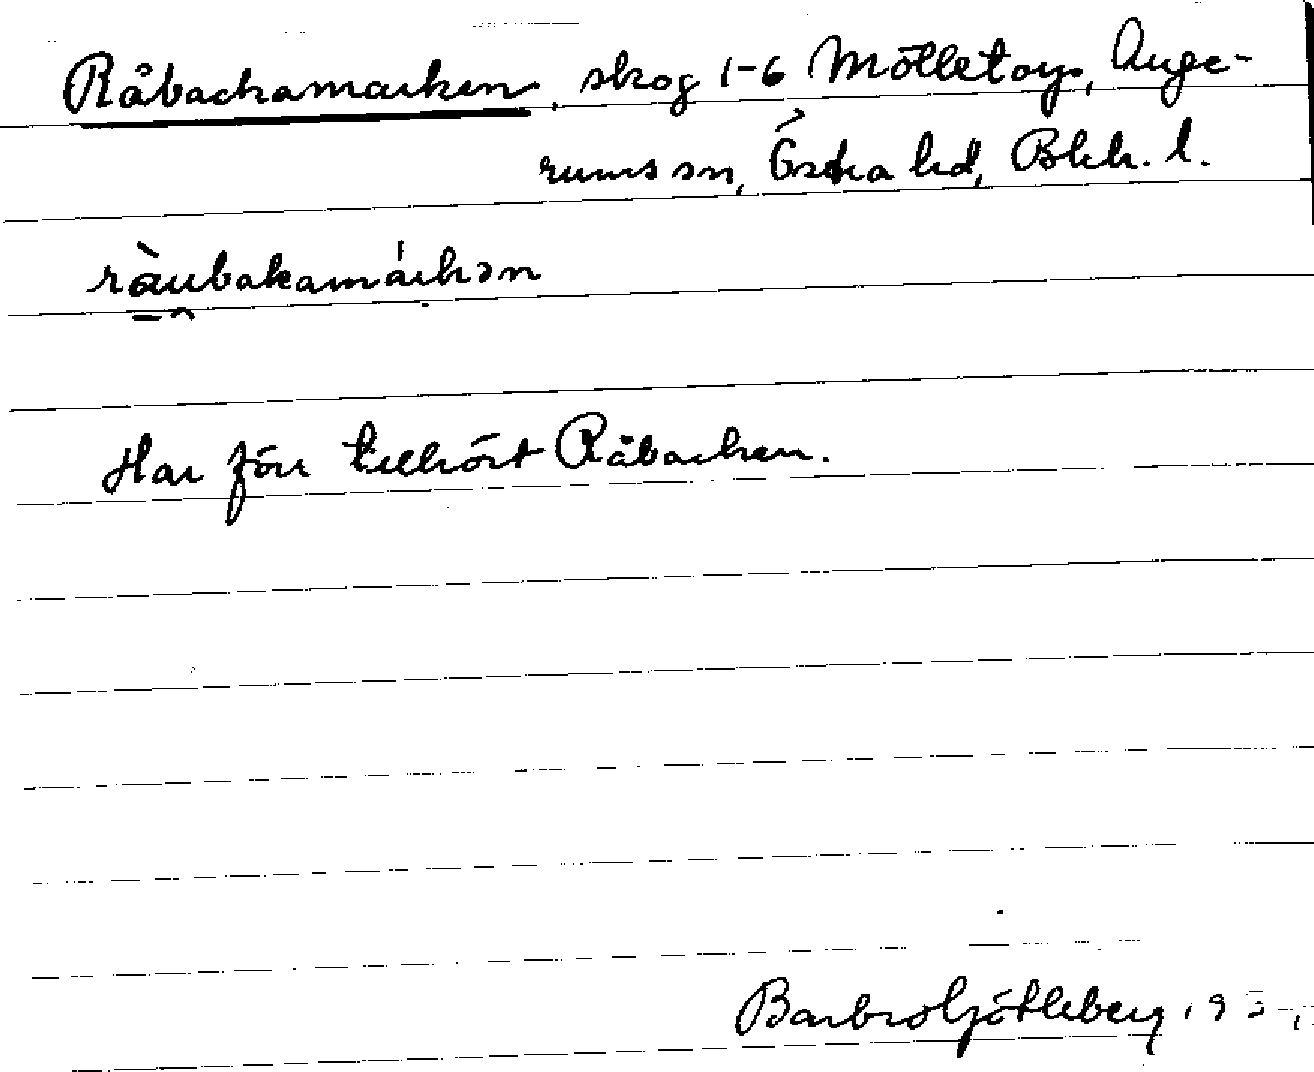 Råbackamarken, skog 1-6 Mölletorp, Auge-
rums sn, Östra hd, Blek. l.
ràubakamárkən
Har förr tillhört Råbacken.
Barbro Ljötleberg 193